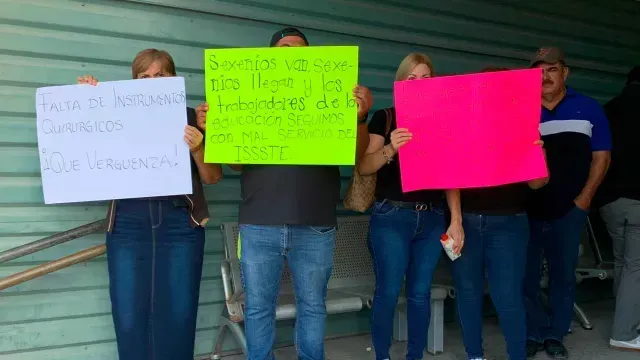 FALTA DE INSTRUMENTOS
QUIRÚRGICOS
¡QUE VERGUENZA!
Sexenios van, Sexe-
nios llegan y los
trabajadores de la
educación SEGUIMOS
CON MAL SERVICIO DEL
ISSSTE.